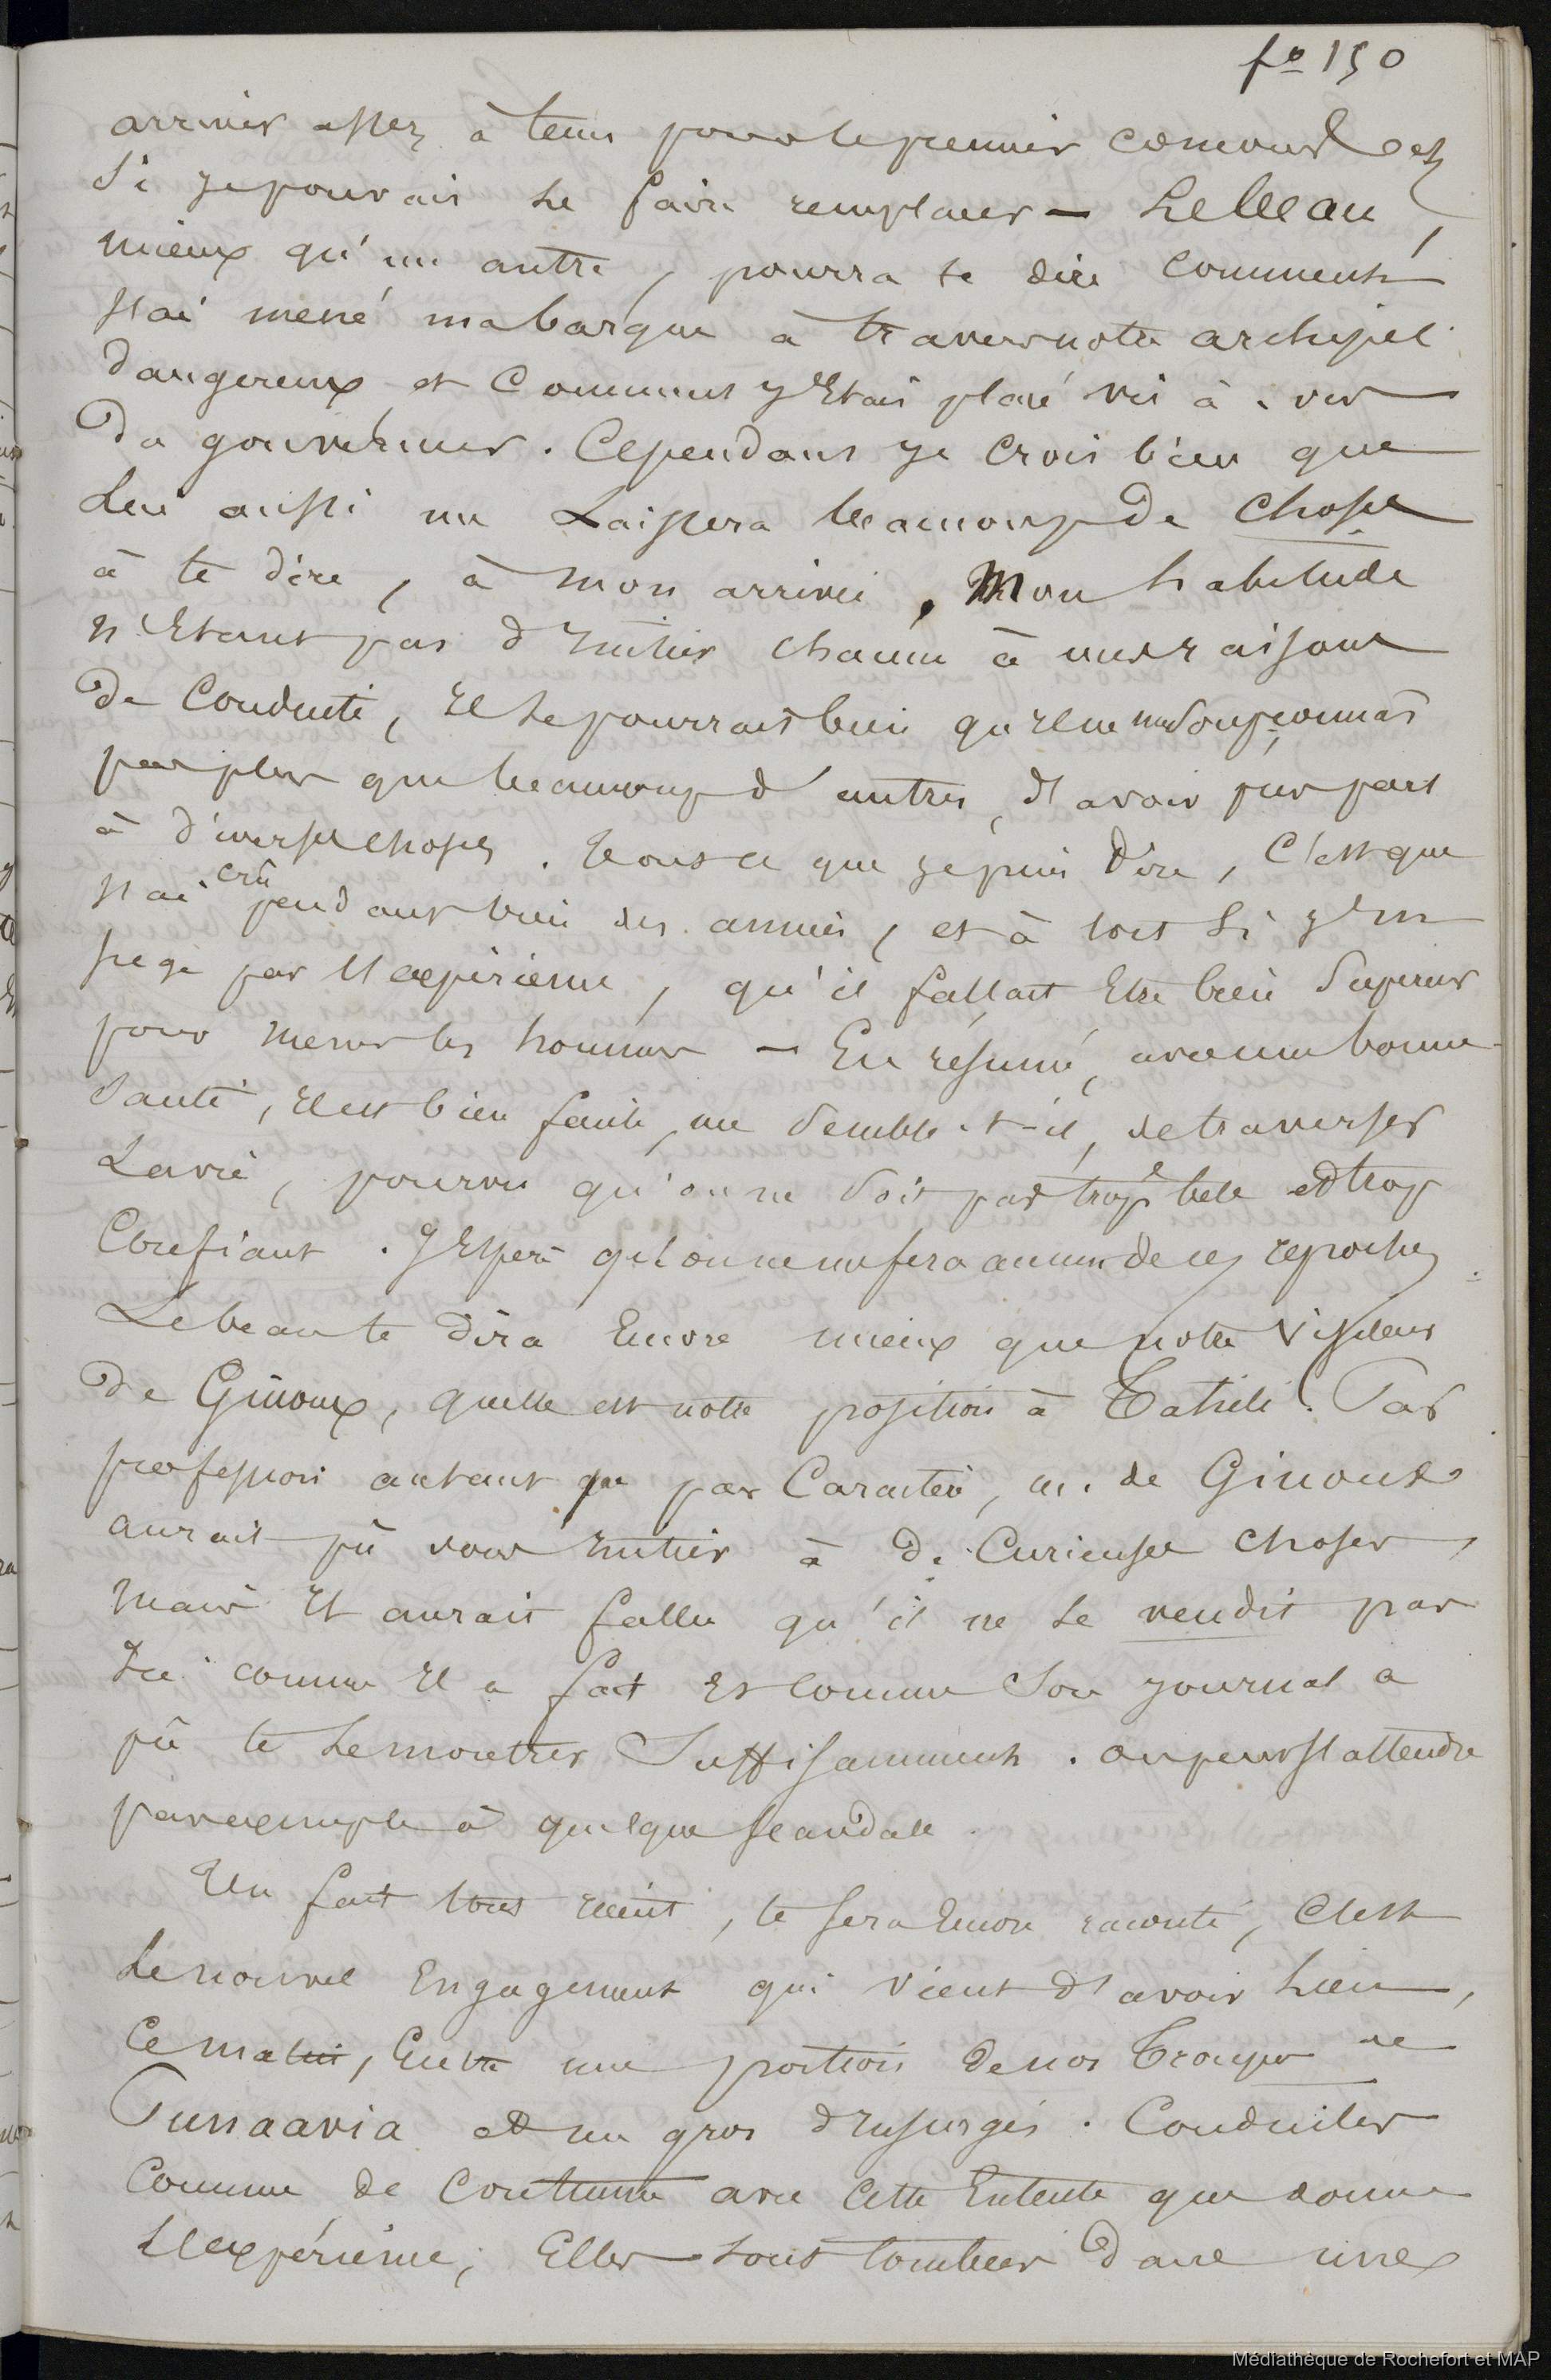 fo 150
arriver assez à tems pour le premier
si je pouvais le faire remplacer — Lebeau,
mieux qu'un autre, pourra te dire comment
j'ai mené ma barque à travers notre archipel
dangereux et comment j'étais placé vis à . vis
du gouverneur . Cependant je crois bien que
lui aussi me laissera beaucoup de choses
à te dire, à mon arrivée . Mon habitude
n'étant pas d'initier chacun à mes raisons
de conduite, il se pourrait bien qu'il ne me soupçonnât
pas plus que beaucoup d'autres, d'avoir pris part
à diverses choses . Tout ce que je puis dire, c'est que
j'ai crû pendant bien des années, et à tort si j'en
juge par l'expérience, qu'il fallait être bien supérieur
pour mener les hommes — En résumé, avec une bonne
santé, il est bien facile, me semble-t-il, de traverser
la vie, pourvu qu'on ne soit pas trop bête et trop
confiant . J'espère qu'on ne me fera aucun de ces reproches
Lebeau te dira encore mieux que notre visiteur
de Ginoux, quelle est notre position à Tahiti . Par
profession autant que par caractère, m. de Ginoux
aurait pû vous initier à de curieuses choses,
mais il aurait fallu qu'il ne se vendit pas
ici comme il a fait et comme son journal a
pû te le montrer suffisamment . on peut s'attendre
par exemple à quelque scandale .
Un fait tout récent, te sera encore raconté, c'est
le nouvel engagement qui vient d'avoir lieu,
ce matin, entre une portion de nos troupes de
Punaavia et un gros d'insurgés . Conduites
comme de coutume avec cette entente que donne
l'expérience, elles sont tombées dans une
Médiathèque de Rochefort et MAP